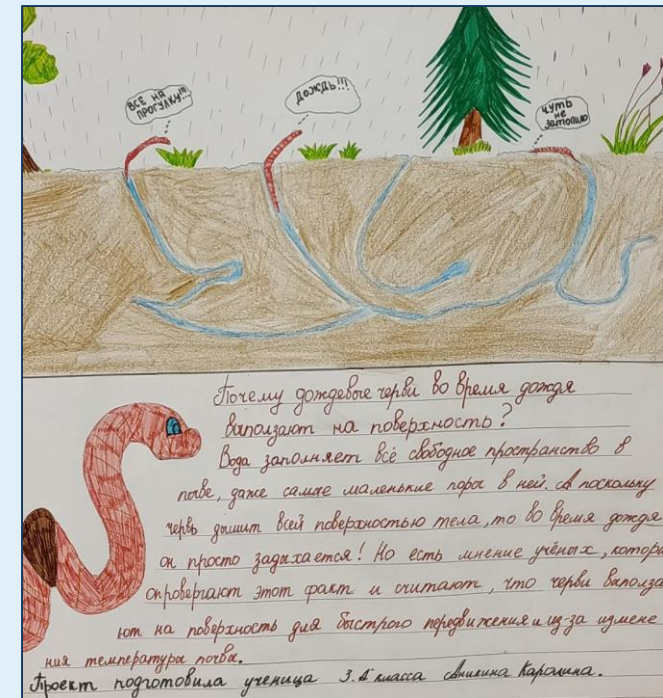 ВСЕ НА
ПРОГУЛКУ!!!
ДОЖДЬ!!!
ЧУТЬ
НЕ
ЗАТОПИЛО
Почему дождевые черви во время дождя
выползают на поверхность?
Вода заполняет всё свободное пространство в
почве, даже самые маленькие поры в ней. А поскольку
червь дышит всей поверхностью тела, то во время дождя
он просто задыхается! Но есть мнение учёных, котора
опровергают этот факт и считают, что черви выполза
ют на поверхность для быстрого передвижения и из-за измене
ния температуры почвы.
Проект подготовила ученица 3 "А" класса Аникина Каролина.